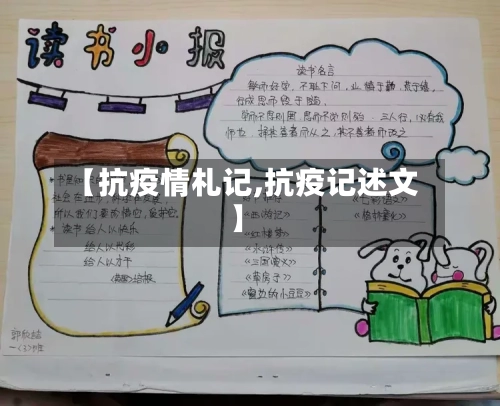 读书小报
读书名言
敏而好学，不耻下问，业精于勤，荒于嬉，
行成思而毁于随。
学而不思则罔，思而不学则殆。三人行，必有我
师也，择其善者而从之，其不善者而改之
【抗疫情札记,抗疫记述文
】
所以我们要
读书给人以快乐
给人以光彩
给人以才干
《西游记》
《红楼梦》
《水浒传》
《三国演义》
《草房子》
《窗边的小豆豆》
《格林童话》
一(3)班